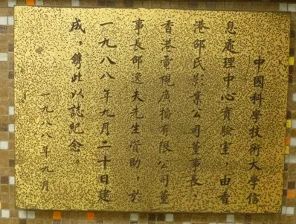 中國科學技術大學信
息處理中心實驗室，由香
港邵氏影業公司董事長、
香港電視廣播有限公司董
事長邵逸夫先生資助，於
一九八八年九月二十日建
成，特此以誌紀念。
一九八八年九月